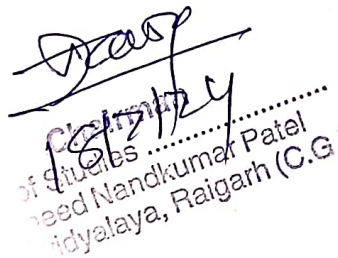 Chairman
18/7/24
of Studies ......................
eed Nandkumar Patel
idyalaya, Raigarh (C.G